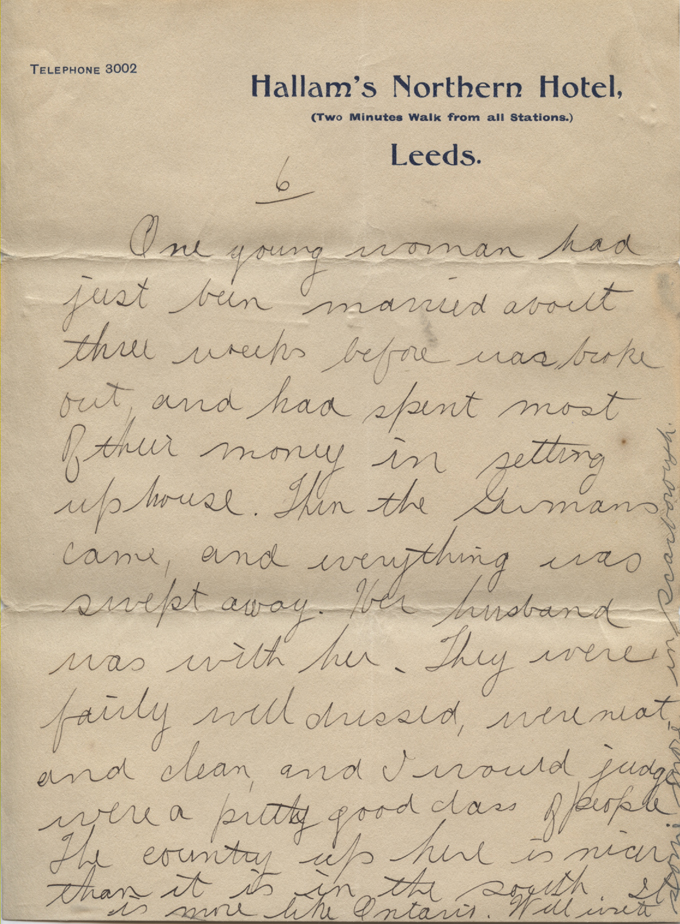 TELEPHONE 3002
Hallam's Northern Hotel,
(Two Minutes Walk from all Stations.)
Leeds.
6
One young woman had
just been married about
three weeks before war broke
out, and had spent most
of their money in setting
up house. Then the Germans
came, and everything was
swept away. Her husband
was with her. They were
fairly well dressed, were neat,
and clean, and I would judge
were a pretty good class of people
The country up here is nicer
than it is in the south. It
is more like Ontario. Will
in Scarborough.